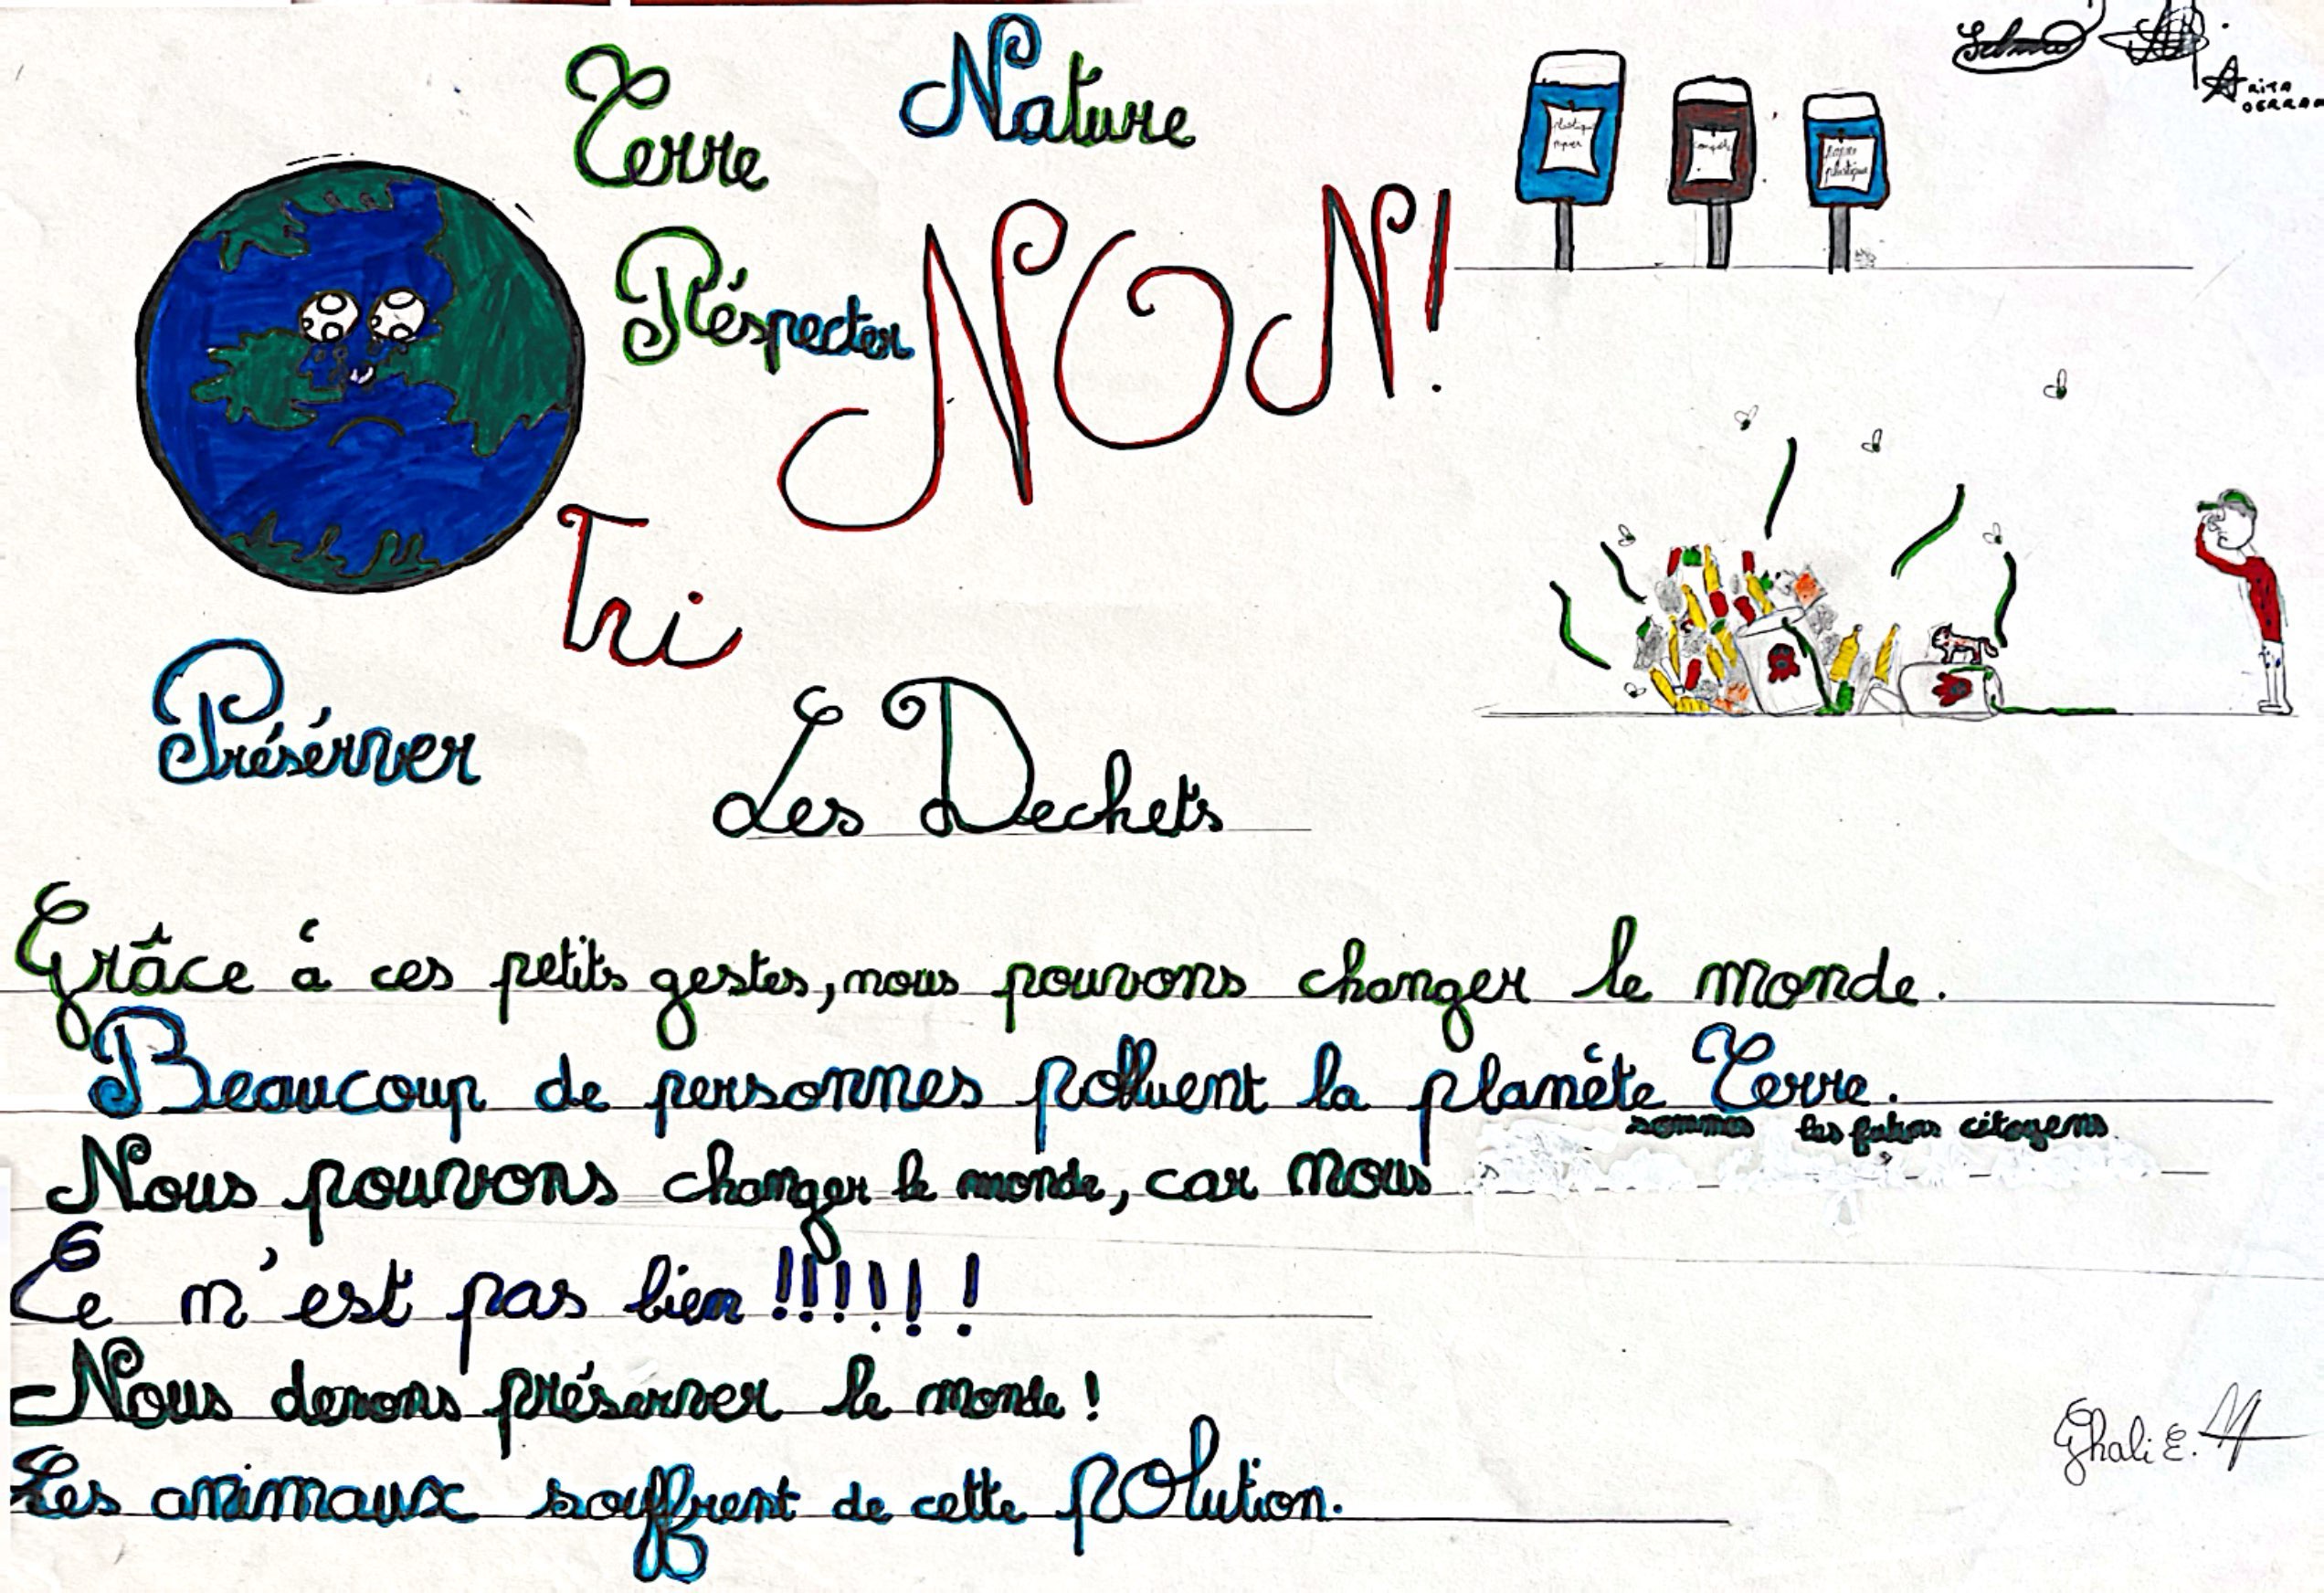 Selma
RITA
Terre
Nature
plastique
papier
compost
papier
plastique
Réspecter
NON!
Tri
Présérver
Les Dechets
Grâce à ces petits gestes, nous pouvons changer le monde.
Beaucoup de personnes polluent la planète Terre.
sommes les futurs citoyens
Nous pouvons changer le monde, car nous
Ce n'est pas bien !!!!!! !
Nous devons préserver le monde !
Les animaux souffrent de cette pOlution.
Ghali E.